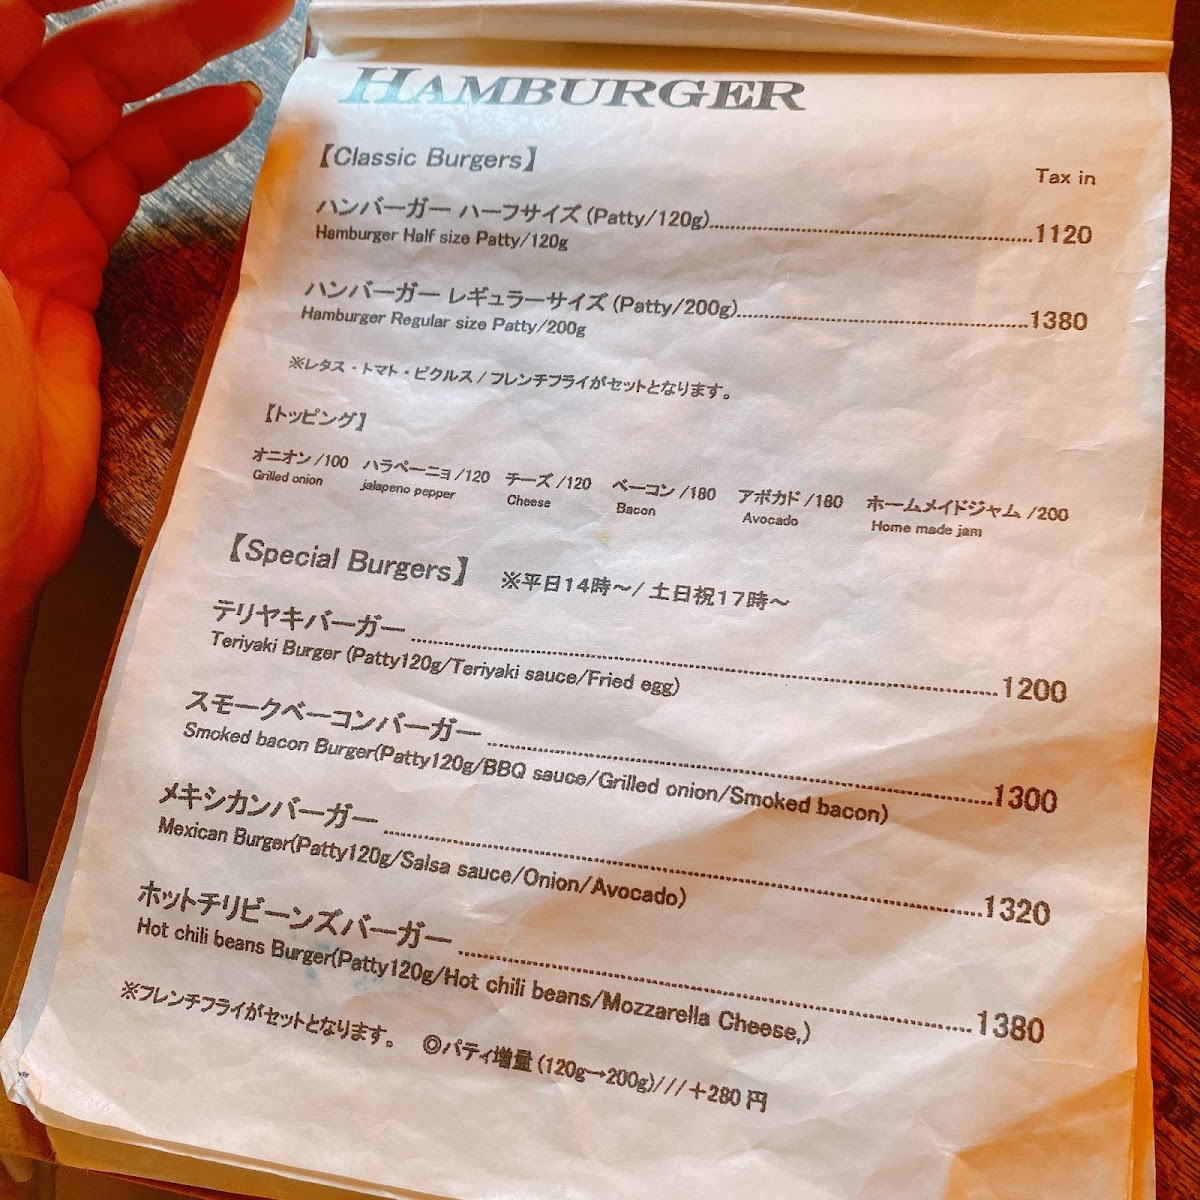 HAMBURGER
【Classic Burgers】
Tax in
ハンバーガー ハーフサイズ (Patty/120g)........1120
Hamburger Half size Patty/120g
ハンバーガー レギュラーサイズ (Patty/200g)........1380
Hamburger Regular size Patty/200g
※レタス・トマト・ピクルス / フレンチフライがセットとなります。
【トッピング】
オニオン /100 ハラペーニョ /120 チーズ /120 ベーコン /180 アボカド /180 ホームメイドジャム /200
Grilled onion jalapeno pepper Cheese Bacon Avocado Home made jam
【Special Burgers】 ※平日14時～/ 土日祝17時～
テリヤキバーガー........1200
Teriyaki Burger (Patty120g/Teriyaki sauce/Fried egg)
スモークベーコンバーガー........1300
Smoked bacon Burger(Patty120g/BBQ sauce/Grilled onion/Smoked bacon)
メキシカンバーガー........1320
Mexican Burger(Patty120g/Salsa sauce/Onion/Avocado)
ホットチリビーンズバーガー........1380
Hot chili beans Burger(Patty120g/Hot chili beans/Mozzarella Cheese,)
※フレンチフライがセットとなります。 ◎パティ増量 (120g→200g)///＋280 円